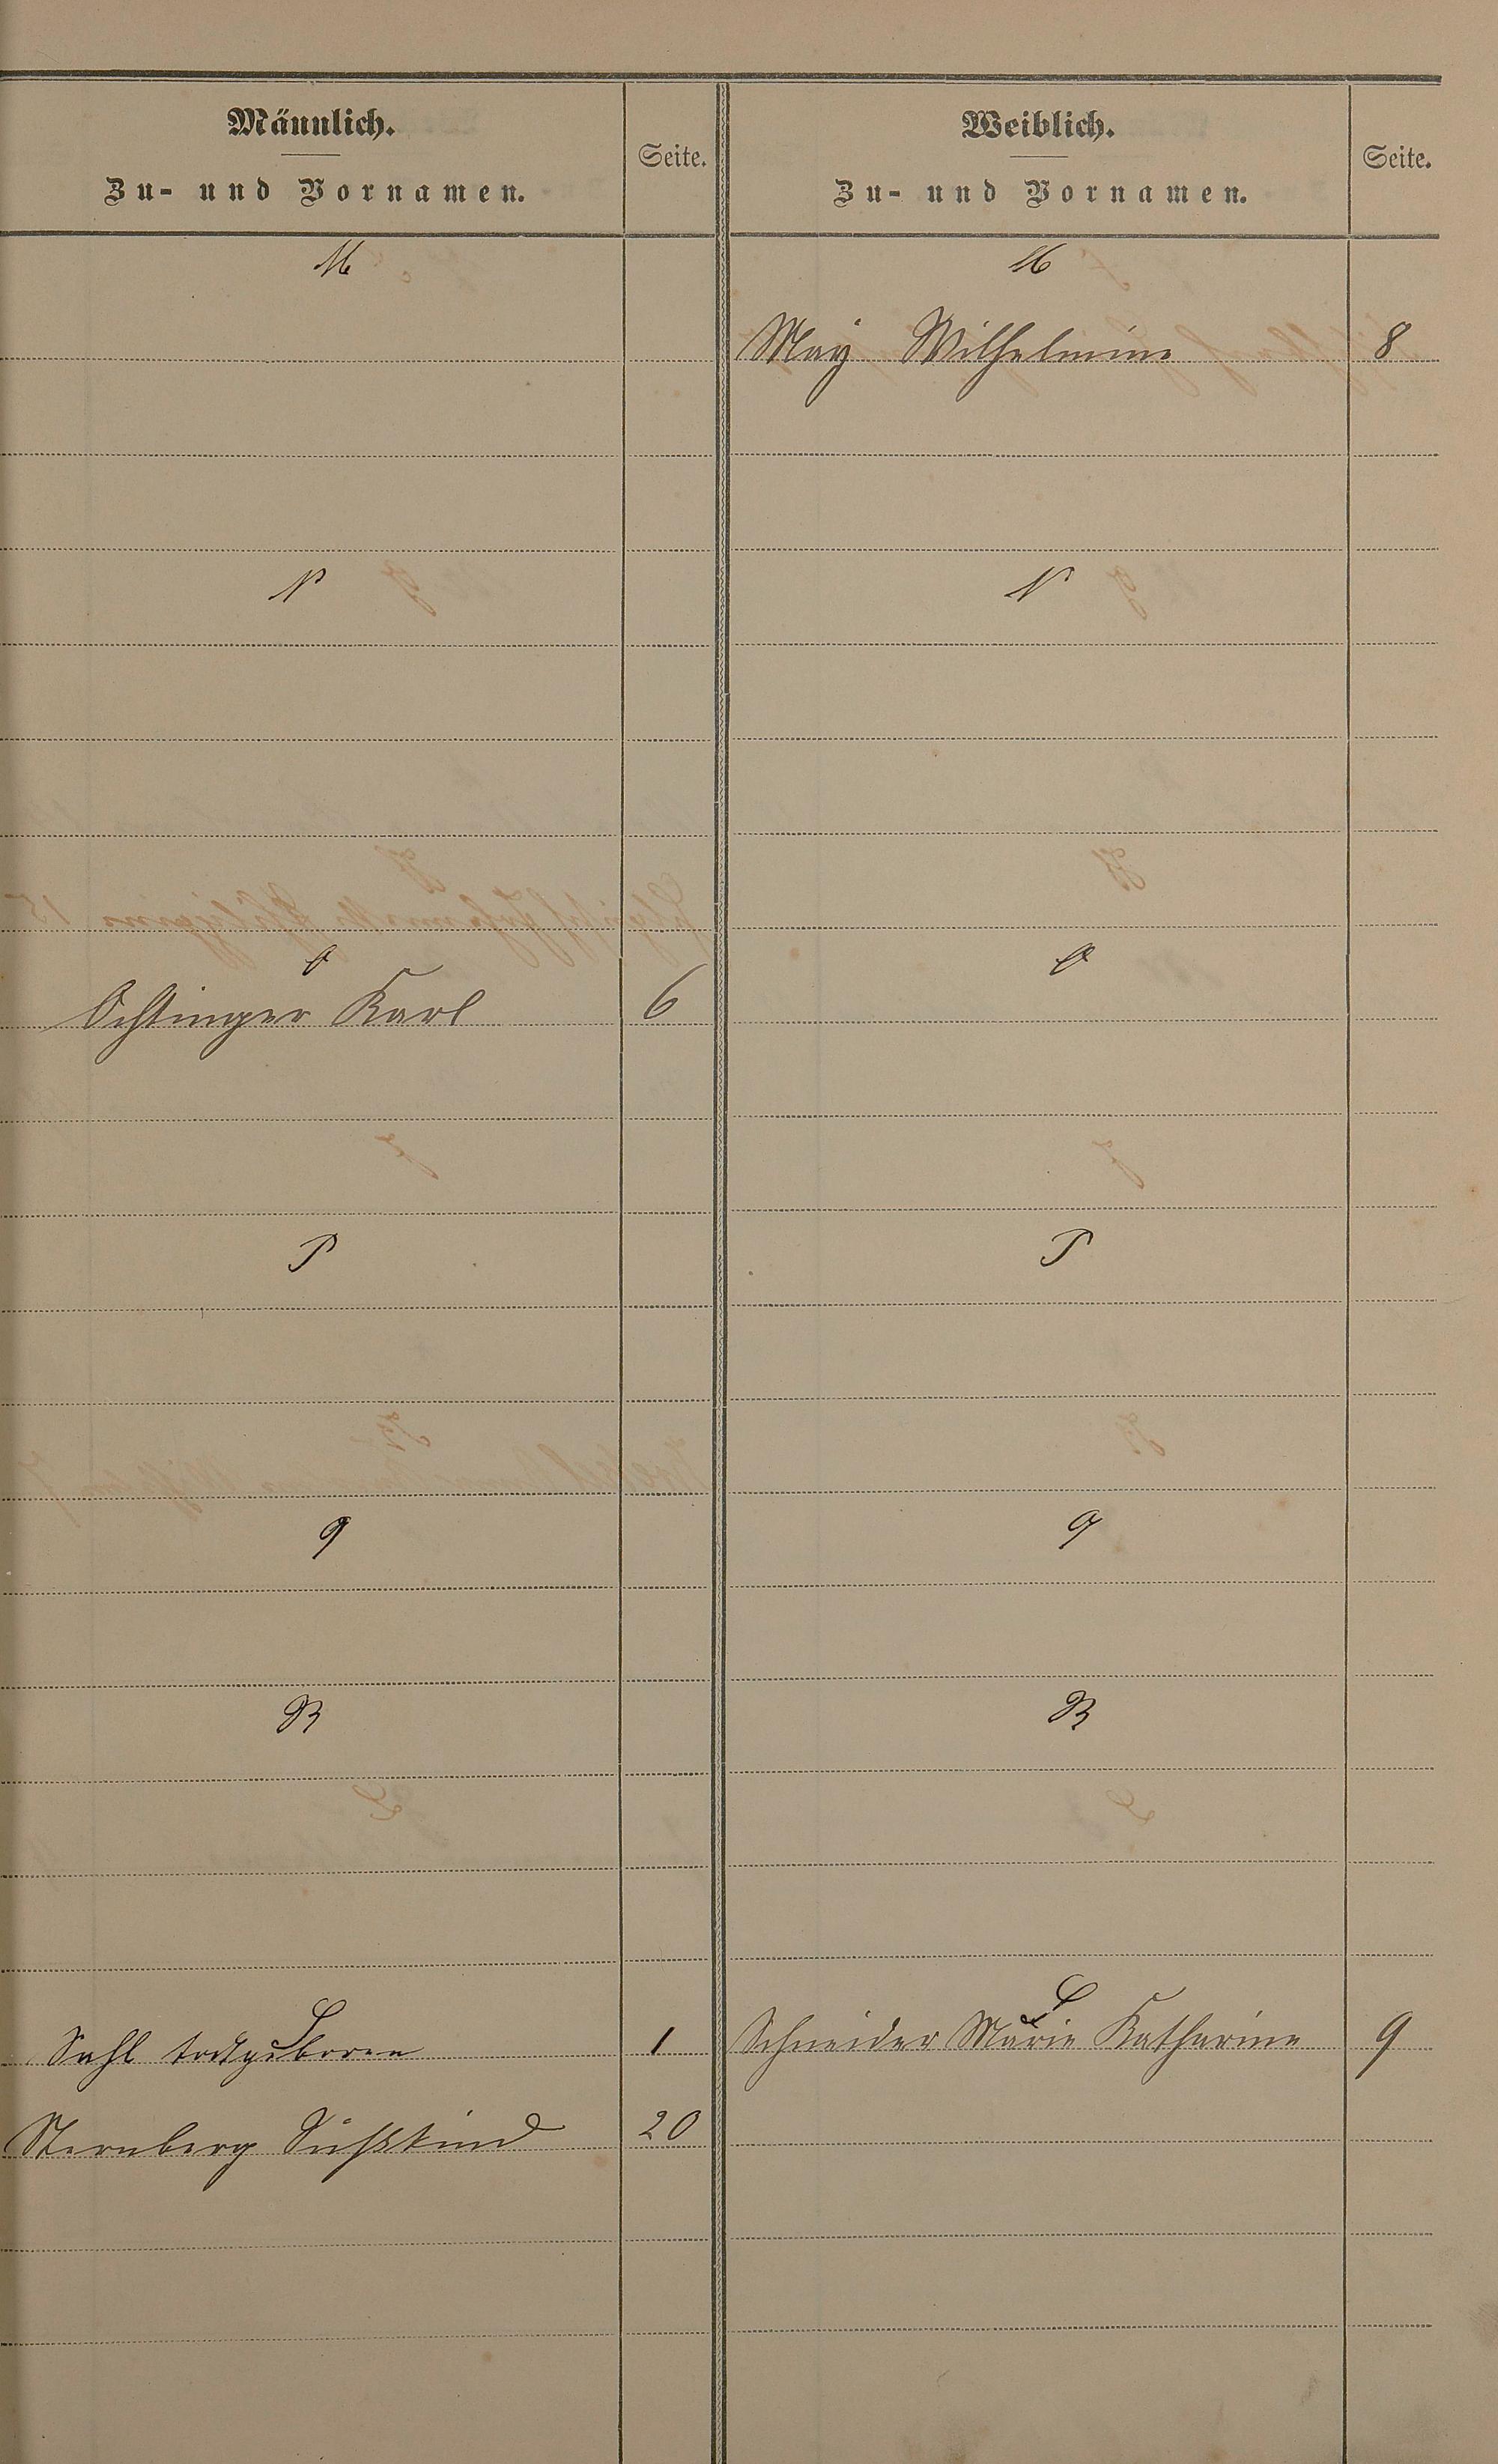 Männlich.
Zu- und Vornamen.
Seite.
Weiblich.
Zu- und Vornamen.
Seite.
M
M
May Wilhelmine 8
N
N
O
O
Oehlinger Karl 6
P
P
Q
Q
R
R
S
S
Sahl todtgeboren 1
Schneider Marie Katharine 9
Sternberg Süßkind 20